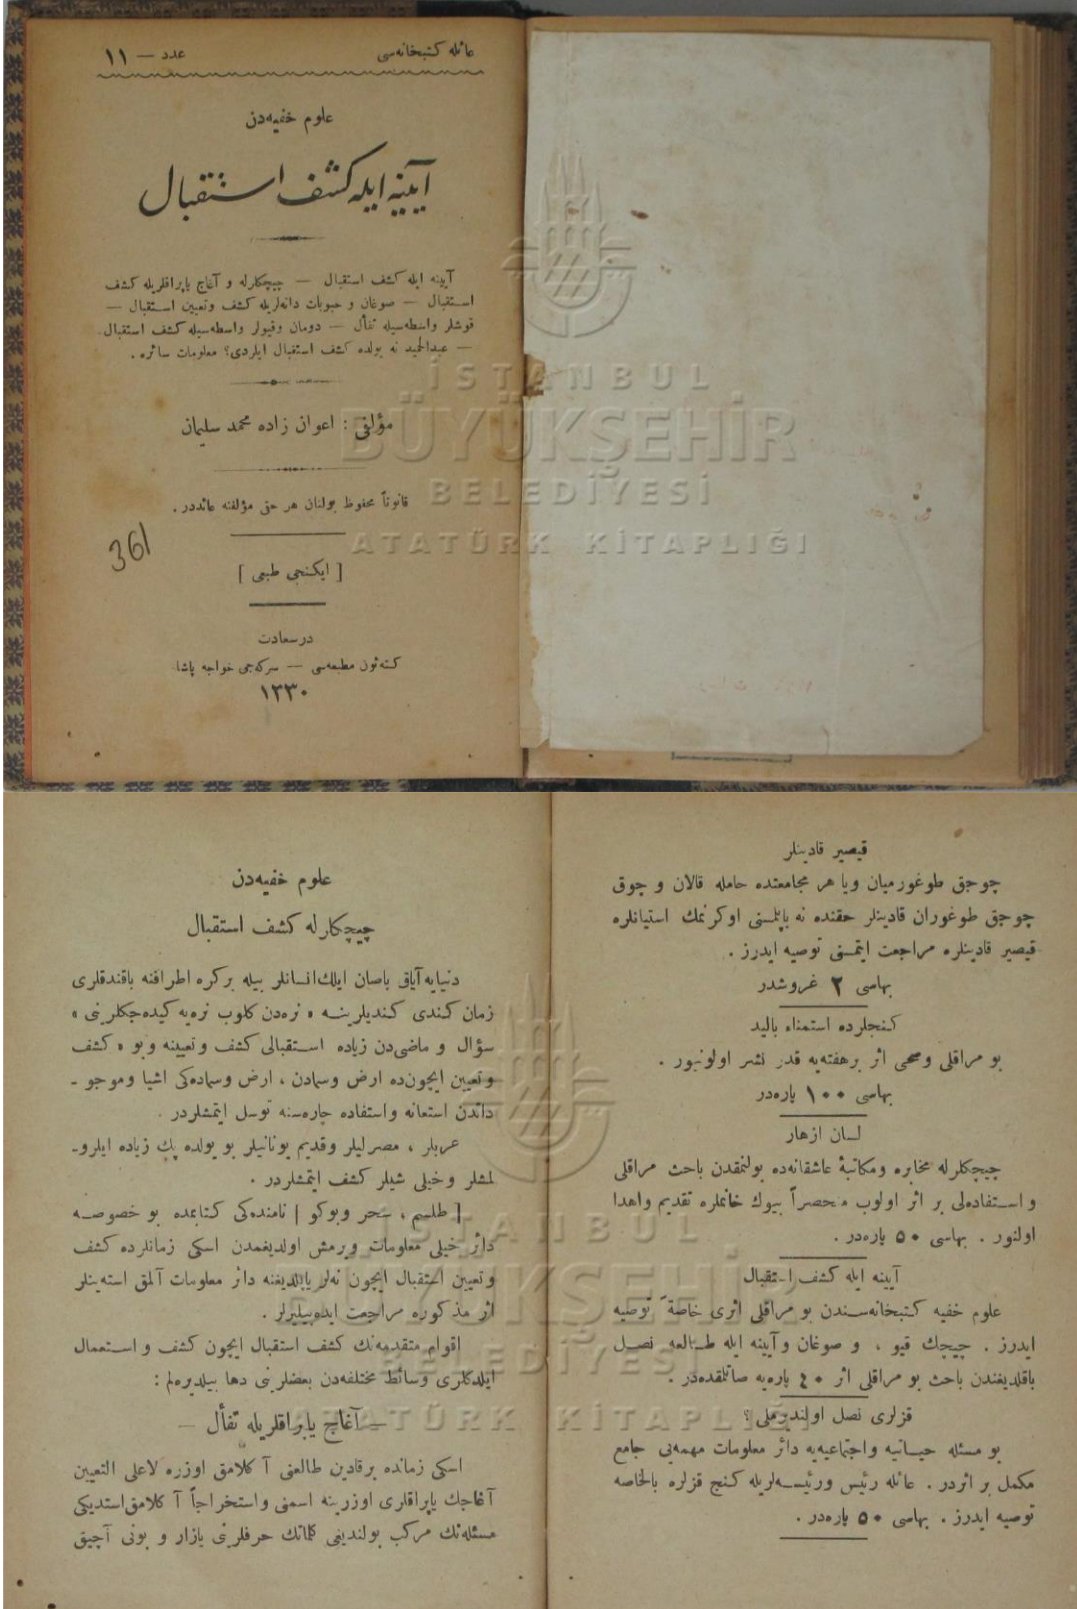 عائله كتبخانه‌سی
عدد — ١١
علوم خفیه‌دن
آیینه ایله كشف استقبال
آیینه ایله كشف استقبال — چیچكلرله و آغاج یاپراقلریله كشف
استقبال — صوغان و حبوبات دانه‌لریله كشف وتعیین استقبال —
قوشلر واسطه‌سیله تفأل — دومان وقیولر واسطه‌سیله كشف استقبال
— عبدالحمید نه یولده كشف استقبال ایلردی؟ معلومات سائره .
مؤلفی : اعوان زاده محمد سلیمان
قانوناً محفوظ بولنان هر حق مؤلفنه عائددر .
361
[ ایكنجی طبعی ]
درسعادت
كته‌ئون مطبعه‌سی — سركه‌جی خواجه پاشا
١٣٣٠
قیصیر قادینلر
چوجق طوغورمیان ویا هر مجامعتده حامله قالان و چوق
چوجق طوغوران قادینلر حقنده نه یاپلمسنی اوكرنمك استیانلره
قیصیر قادینلره مراجعت ایتمسنی توصیه ایدرز .
بهاسی ٢ غروشدر
كنجلرده استمناء بالید
بو مراقلی وصحی اثر برهفته‌یه قدر نشر اولونیور .
بهاسی ١٠٠ پاره‌در
لسان ازهار
چیچكلرله مخابره ومكاتبهٔ عاشقانه‌ده بولنمقدن باحث مراقلی
و استفاده‌لی بر اثر اولوب منحصراً بیوك خانملره تقدیم واهدا
اولنور . بهاسی ٥٠ پاره‌در .
آیینه ایله كشف استقبال
علوم خفیه كتبخانه‌سندن بو مراقلی اثری خاصةً توصیه
ایدرز . چیچك قیو ، و صوغان وآیینه ایله طالعه نصل
باقلدیغندن باحث بو مراقلی اثر ٤٠ پاره‌یه صاتلقده‌در .
قزلری نصل اولندیرملی ؟
بو مسئله حیاتیه واجتماعیه‌یه دائر معلومات مهمه‌یی جامع
مكمل بر اثردر . عائله رئیس ورئیسه‌لریله كنج قزلره بالخاصه
توصیه ایدرز . بهاسی ٥٠ پاره‌در .
علوم خفیه‌دن
چیچكلرله كشف استقبال
دنیایه آیاق باصان ایلك انسانلر بیله بركره اطرافنه باقندقلری
زمان كندی كندیلرینه « نره‌دن كلوب نره‌یه كیده‌جكلرینی »
سؤال و ماضی‌دن زیاده استقبالی كشف وتعیینه وبو « كشف
وتعیین ایچون‌ده ارض وسمادن ، ارض وسماده‌كی اشیا وموجو -
داتدن استعانه واستفاده چاره‌سنه توسل ایتمشلردر .
عربلر ، مصرلیلر وقدیم یونانیلر بو یولده پك زیاده ایلرو-
لمشلر وخیلی شیلر كشف ایتمشلردر .
[ طلسم ، سحر وبوكو ] نامنده‌كی كتابمده بو خصوصه
دائر خیلی معلومات ویرمش اولدیغمدن اسكی زمانلرده كشف
وتعیین استقبال ایچون نه‌لر یاپلدیغنه دائر معلومات آلمق استه‌ینلر
اثر مذكوره مراجعت ایده‌بیلیرلر .
اقوام متقدمه‌نك كشف استقبال ایچون كشف و استعمال
ایلدكلری وسائط مختلفه‌دن بعضلرینی دها بیلدیره‌لم :
— آغاچ یاپراقلریله تفأل —
اسكی زمانده برقادین طالعنی آكلامق اوزره لاعلی التعیین
آغاجك یاپراقلری اوزرینه اسمنی واستخراجاً آكلامق استدیكی
مسئله‌نك مركب بولندیغی كلماتك حرفلرینی یازار و بونی آچیق
İSTANBUL
BÜYÜKŞEHİR
BELEDİYESİ
ATATÜRK KİTAPLIĞI